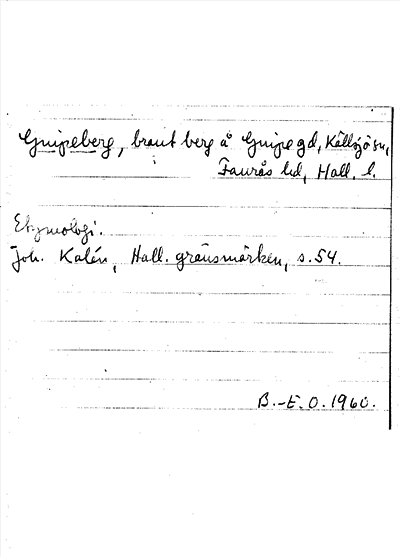 Gnipeberg, brant berg å Gnipe gd, Källsjö sn,
Faurås hd, Hall. l.
Etymologi.
Joh. Kalén, Hall. gränsmärken, s. 54.
B.-E. O. 1960.